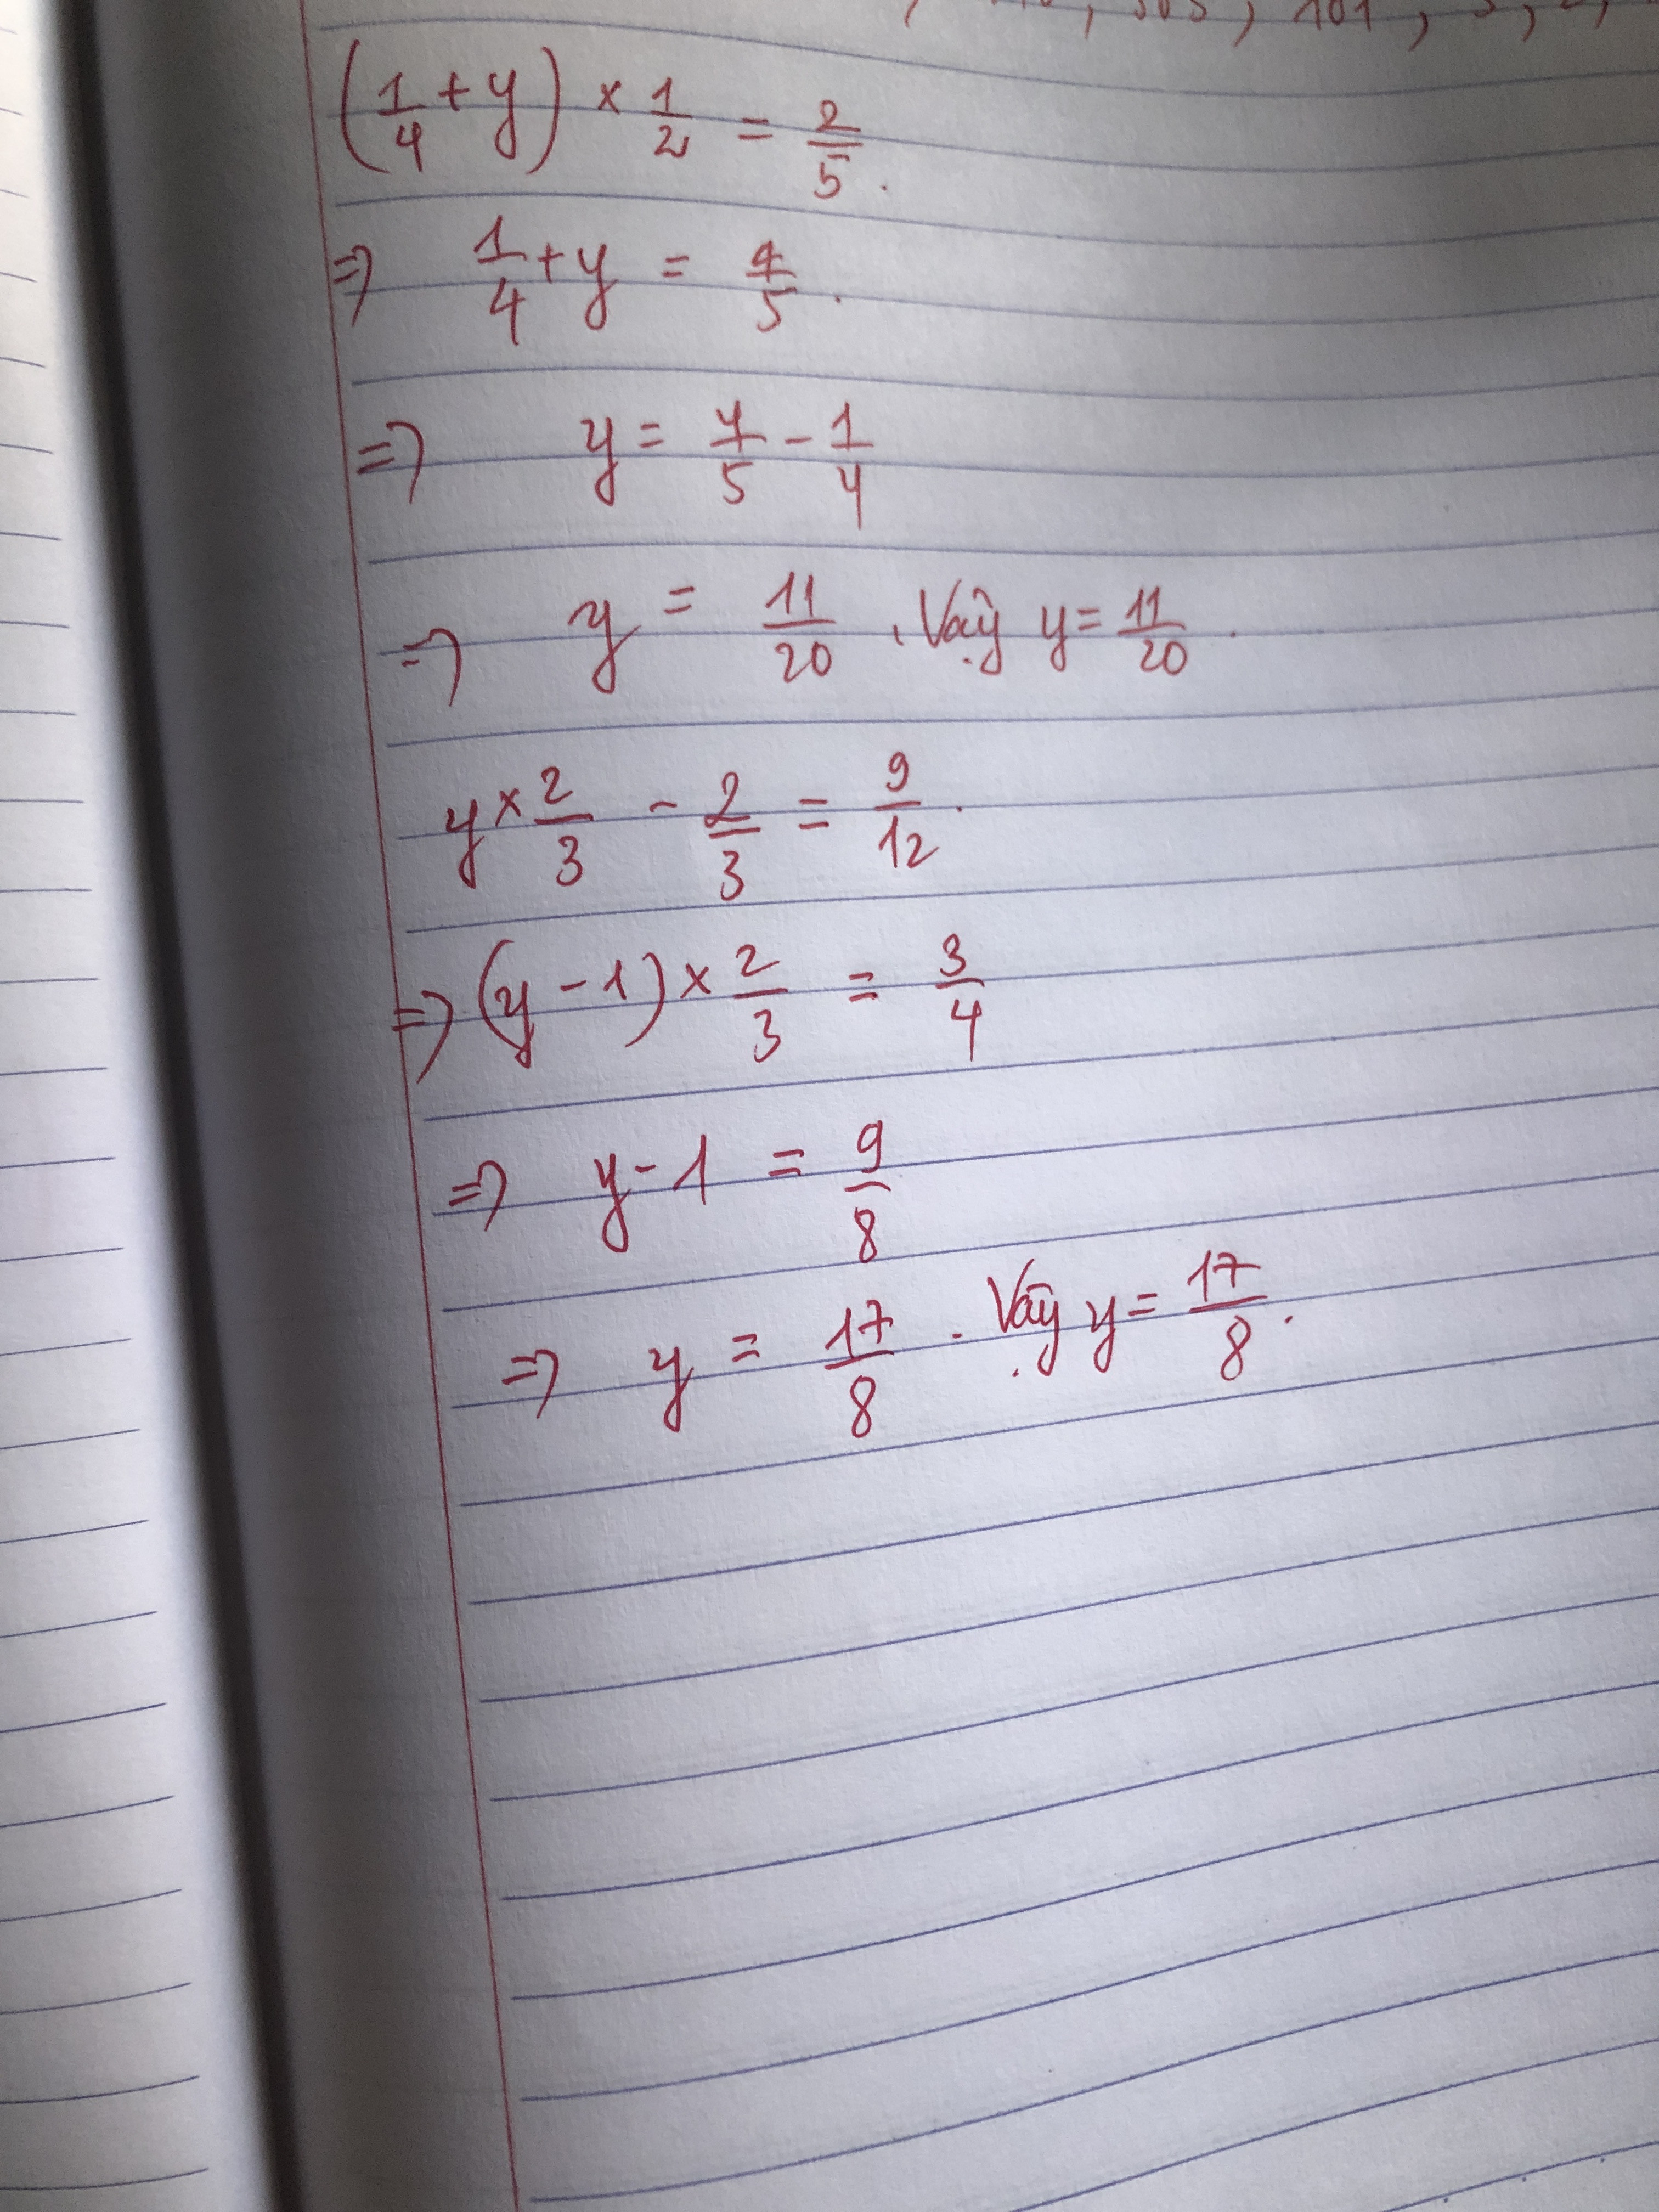 , 303, 101, 3, 2,
(1/4 + y) × 1/2 = 2/5.
=> 1/4 + y = 4/5.
=> y = 4/5 - 1/4
=> y = 11/20. Vậy y = 11/20.
y × 2/3 - 2/3 = 9/12.
=> (y - 1) × 2/3 = 3/4
=> y - 1 = 9/8
=> y = 17/8. Vậy y = 17/8.